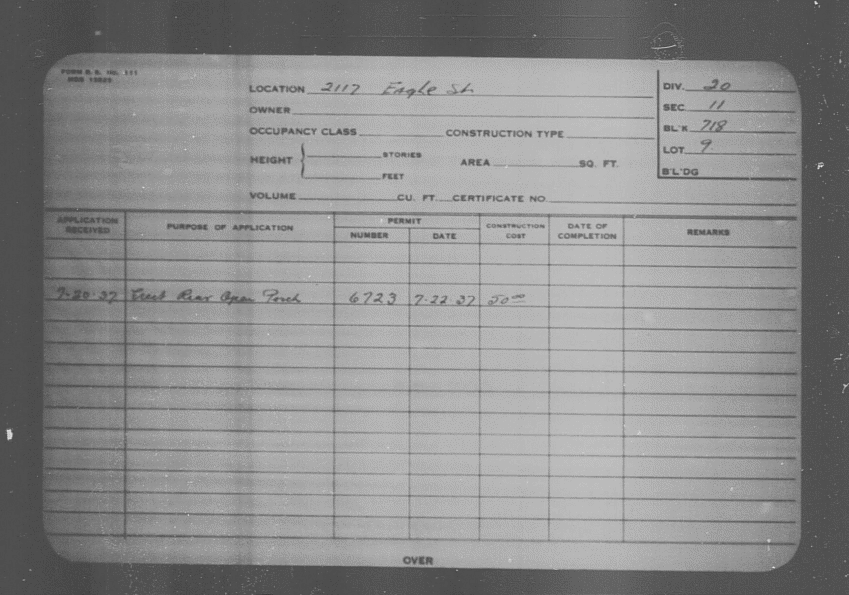 FORM B. S. NO. 111
LOCATION 2117 Eagle St.
OWNER
OCCUPANCY CLASS CONSTRUCTION TYPE
HEIGHT STORIES
FEET
AREA SQ. FT.
VOLUME CU. FT. CERTIFICATE NO.
DIV. 20
SEC. 11
BL'K 718
LOT 9
B'L'DG
APPLICATION RECEIVED PURPOSE OF APPLICATION PERMIT NUMBER DATE CONSTRUCTION COST DATE OF COMPLETION REMARKS
7-20-37 Erect Rear Open Porch 6723 7-22-37 50 00
OVER